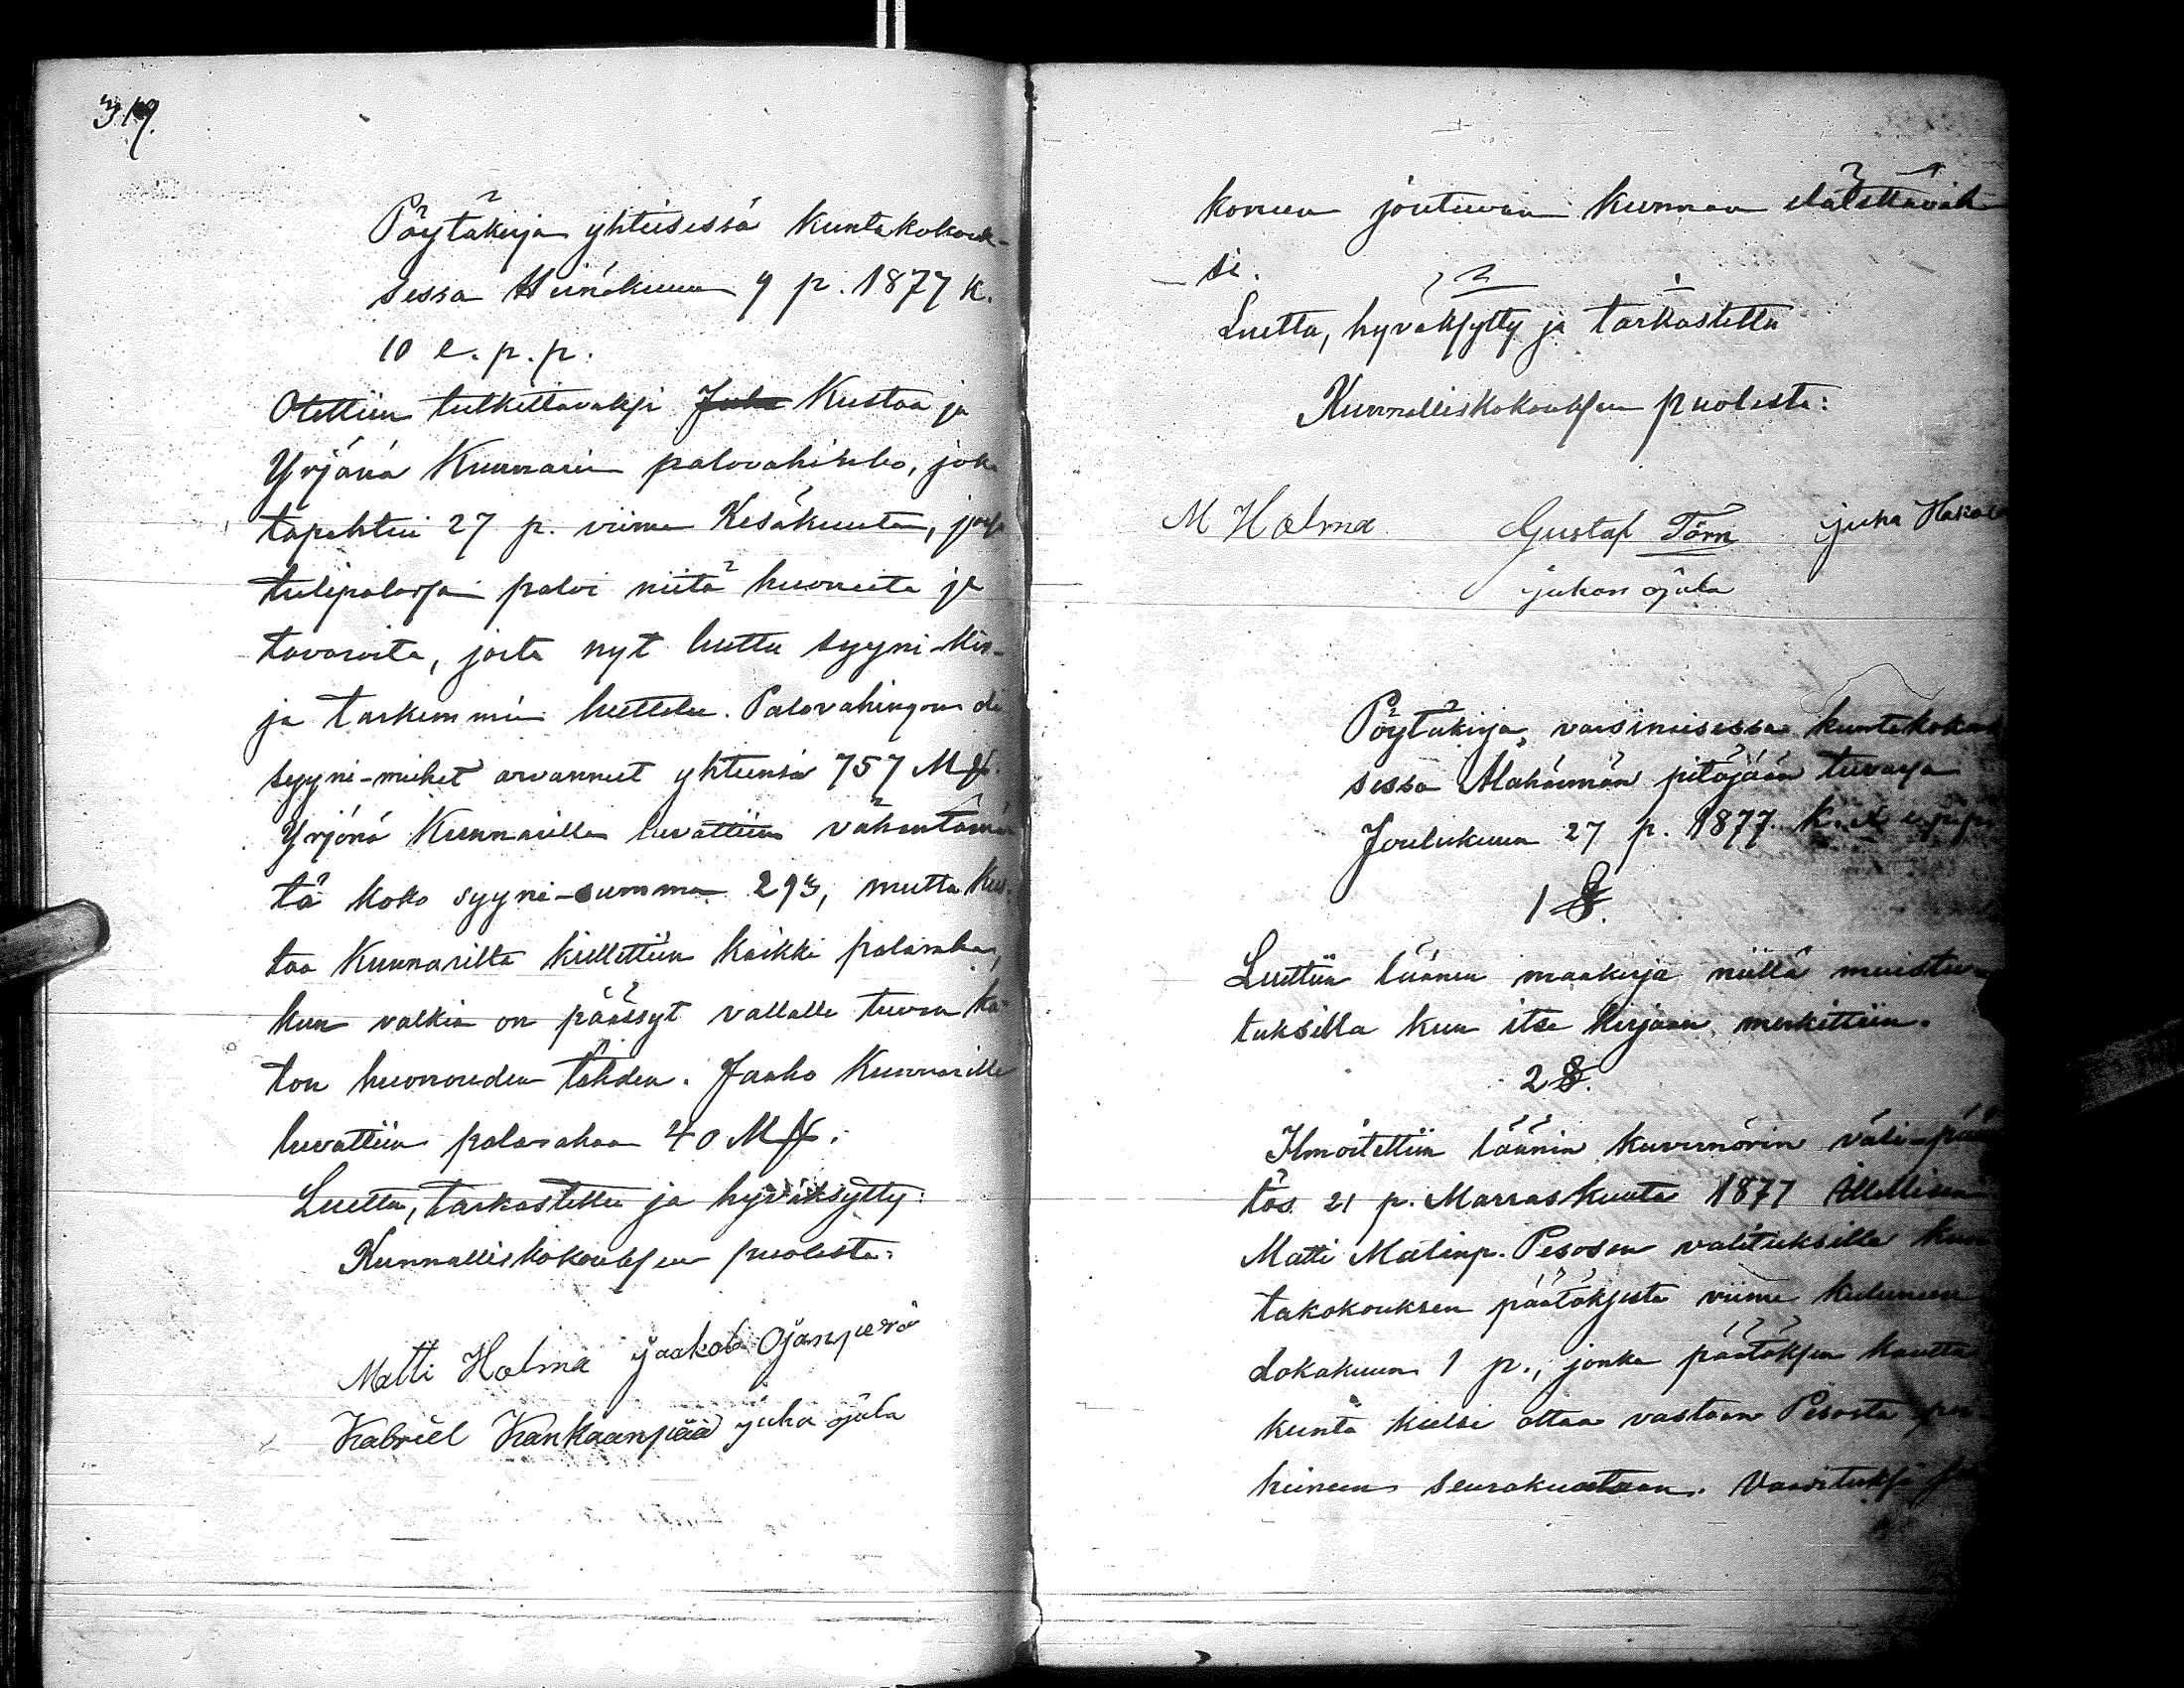 319.
Pöytäkirja yhteisessä kuntakokouk-
sessa Heinäkuun 9 p. 1877 k.
10 e. p. p.
Otettiin tutkittavaksi Juha Kustaa ja
Yrjänä Kunnarin palovahinko, joka
tapahtui 27 p. viime Kesäkuuta, jossa
tulipalossa paloi niitä huoneita ja
tavaroita, joita nyt luettu syyni-kir-
ja tarkemmin luettelee. Palovahingon oli
syyni-miehet arvanneet yhteensä 757 Mk.
Yrjänä Kunnarille luvattiin vähentämä
tä koko syyni-summa 293, mutta Kus-
taa Kunnarilta kiellettiin kaikki paloraha,
kun valkia on päässyt vallalle tuvan ka-
ton huonouden tähden. Jaako Kunnarille
luvattiin palorahaa 40 Mk.
Luettu, tarkastettu ja hyväksytty:
Kunnalliskokouksen puolesta:
Matti Holma Jaakob Ojanperä
Kabriel Kankaanpää Juha Ojala
joutuvan kunnan elätettäväk-
si.
Luettu, hyväksytty ja tarkastettu
Kunnalliskokouksen puolesta:
M Holma Gustaf Törn Juha Hakala
juhan ojala
Pöytäkirja, varsinaisessa kuntakokouk
sessa Alahärmän pitäjään tuvassa
Joulukuun 27 p. 1877 k.
1 §.
Luettiin läänin maakirja niillä muistu-
tuksilla kun itse kirjaan merkittiin.
2 §.
Ilmoitettiin läänin kuvernörin väli-pää
tös 21 p. Marraskuuta 1877
Matti Matinp. Pesosen valituksilla kun
takokouksen päätöksestä viime kuluneen
Lokakuun 1 p., jonka päätöksen kautta
kunta kielsi ottaa vastaan Pesosta per
heineen seurakuntaan.